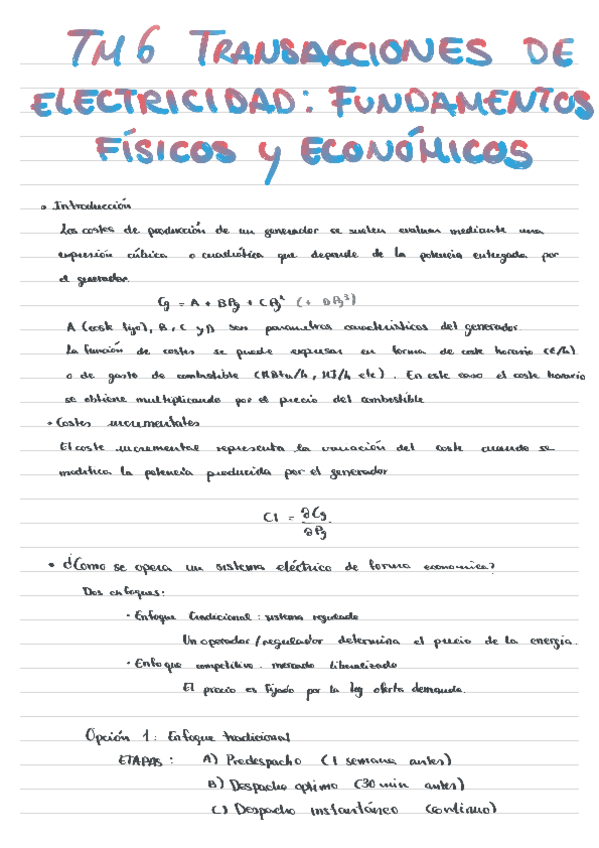 TM6 TRANSACCIONES DE
ELECTRICIDAD: FUNDAMENTOS
FÍSICOS Y ECONÓMICOS
• Introducción
Los costes de producción de un generador se suelen evaluar mediante una
expresión cúbica o cuadrática que depende de la potencia entregada por
el generador.
Cg = A + BPg + CPg² (+ DPg³)
A (coste fijo), B, C y D son parametros caracteristicos del generador.
La función de costes se puede expresar en forma de coste horario (€/h)
o de gasto de combustible (MBtu/h, MJ/h etc). En este caso el coste horario
se obtiene multiplicando por el precio del combustible
• Costes incrementales
El coste incremental representa la variación del coste cuando se
modifica la potencia producida por el generador
CI = ∂Cg / ∂Pg
• ¿Como se opera un sistema eléctrico de forma economica?
Dos enfoques:
· Enfoque tradicional: sistema regulado
Un operador/regulador determina el precio de la energía.
· Enfoque competitivo: mercado liberalizado
El precio es fijado por la ley oferta demanda.
Opción 1: Enfoque tradicional
ETAPAS: A) Predespacho (1 semana antes)
B) Despacho optimo (30 min antes)
C) Despacho instantáneo (continuo)